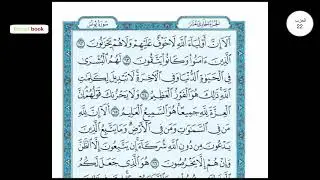 الحزب
22
book
أَلَا إِنَّ أَوْلِيَاءَ اللَّهِ لَا خَوْفٌ عَلَيْهِمْ وَلَا هُمْ يَحْزَنُونَ
الَّذِينَ ءَامَنُوا وَكَانُوا يَتَّقُونَ لَهُمُ الْبُشْرَى
فِي الْحَيَوٰةِ الدُّنْيَا وَفِي الْآخِرَةِ لَا تَبْدِيلَ لِكَلِمَاتِ
اللَّهِ ذَٰلِكَ هُوَ الْفَوْزُ الْعَظِيمُ وَلَا يَحْزُنكَ قَوْلُهُمْ إِنَّ
الْعِزَّةَ لِلَّهِ جَمِيعًا هُوَ السَّمِيعُ الْعَلِيمُ أَلَا إِنَّ لِلَّهِ
مَن فِي السَّمَٰوَٰتِ وَمَن فِي الْأَرْضِ وَمَا يَتَّبِعُ الَّذِينَ
يَدْعُونَ مِن دُونِ اللَّهِ شُرَكَاءَ إِن يَتَّبِعُونَ إِلَّا الظَّنَّ
وَإِنْ هُمْ إِلَّا يَخْرُصُونَ هُوَ الَّذِي جَعَلَ لَكُمُ